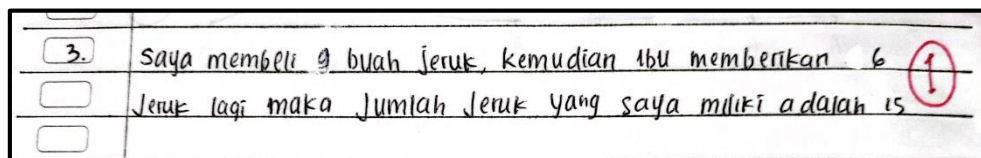 3. saya membeli 9 buah jeruk, kemudian ibu memberikan 6
Jeruk lagi maka Jumlah Jeruk yang saya miliki adalah 15
1